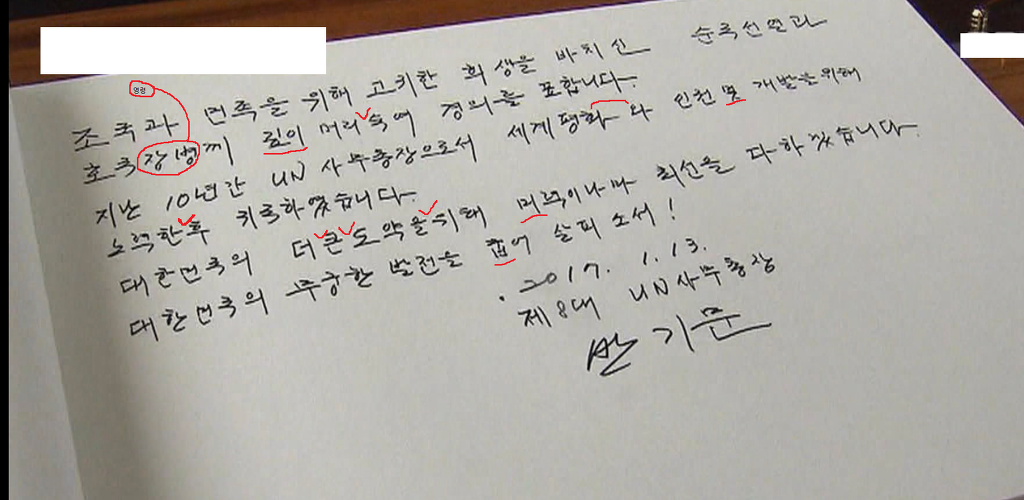 조국과 민족을 위해 고귀한 희생을 바치신 순국선열과
영령
호국장병께 깊이 머리숙여 경의를 표합니다.
지난 10년간 UN 사무총장으로서 세계평화와 인권 및 개발을 위해
노력한후 귀국하였습니다.
대한민국의 더큰도약을위해 미력이나마 최선을 다하겠습니다.
대한민국의 무궁한 발전을 굽어 살피소서!
2017. 1. 13.
제8대 UN사무총장
반기문